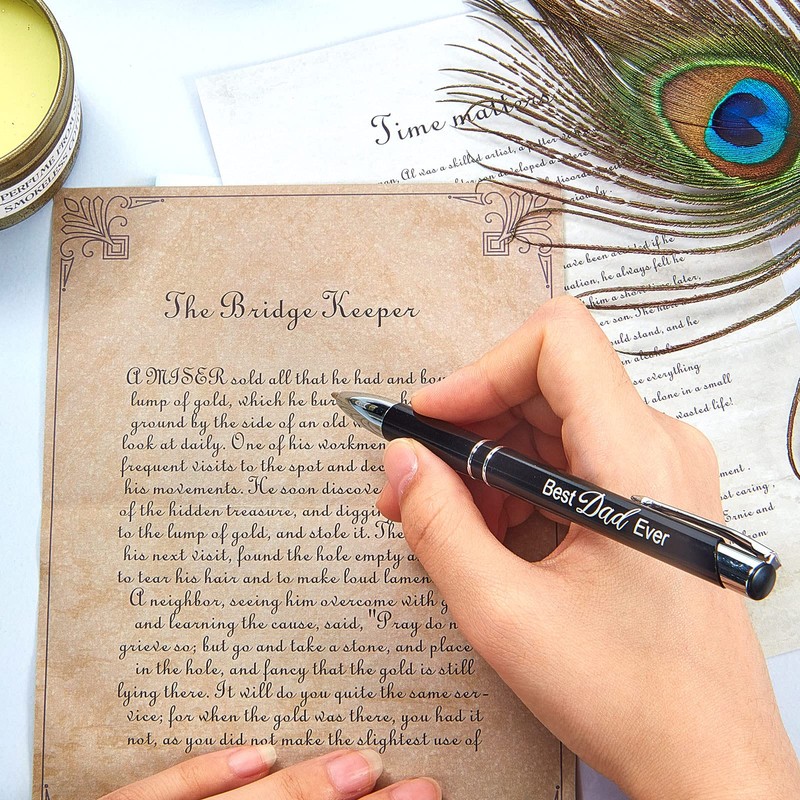 PERFUME FRA
SMOKELESS
Time matters
Al was a skilled artist, a potter
son developed a severe
have been avoided if he
uation, he always felt he
him a short time later,
er son. The
uld stand, and he
in alcohol
se everything
t alone in a small
wasted life!
ment.
st caring,
Ernie and
from
The Bridge Keeper
A MISER sold all that he had and bou
lump of gold, which he bur
ground by the side of an old w
look at daily. One of his workmen
frequent visits to the spot and dec
his movements. He soon discove
of the hidden treasure, and diggi
to the lump of gold, and stole it. The
his next visit, found the hole empty a
to tear his hair and to make loud lamen
A neighbor, seeing him overcome with g
and learning the cause, said, "Pray do n
grieve so; but go and take a stone, and place
in the hole, and fancy that the gold is still
lying there. It will do you quite the same ser-
vice; for when the gold was there, you had it
not, as you did not make the slightest use of
Best Dad Ever